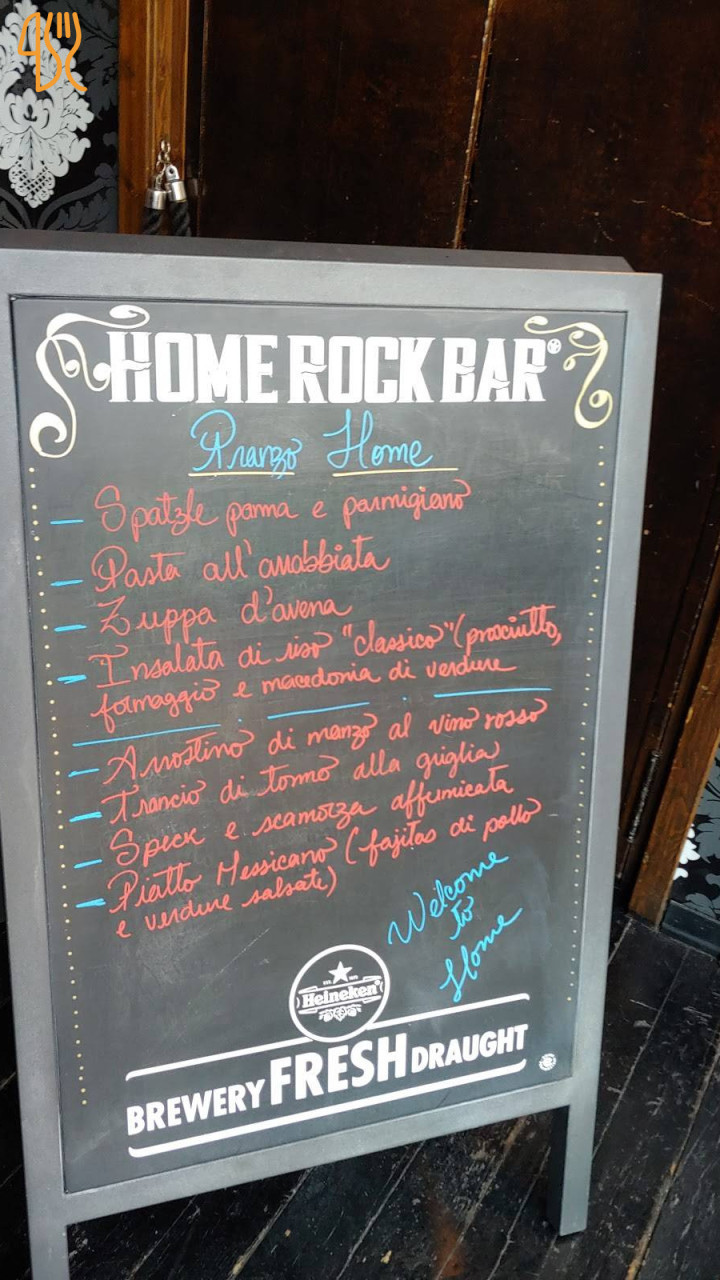 HOME ROCK BAR
Pranzo Home
- Spatzle panna e parmigiano
- Pasta all'arrabbiata
- Zuppa d'avena
- Insalata di riso "classico" (prosciutto,
formaggio e macedonia di verdure
- Arrostino di manzo al vino rosso
- Trancio di tonno alla griglia
- Speck e scamorza affumicata
- Piatto Messicano (fajitas di pollo
e verdure salsate)
Welcome
to
Home
Heineken
BREWERY FRESH DRAUGHT